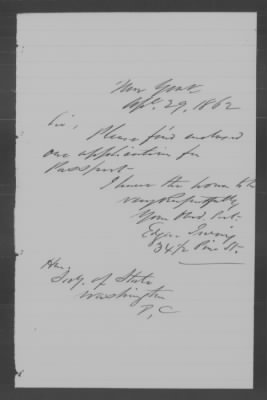 New York
Apl. 29, 1862
Sir,
Please find enclosed
one application for
Passport
I have the honor to be
very Respectfully
Your Obd. Svt.
Edgr. Irving
34 1/2 Pine St.
Hon.
Secy. of State
Washington
D, C